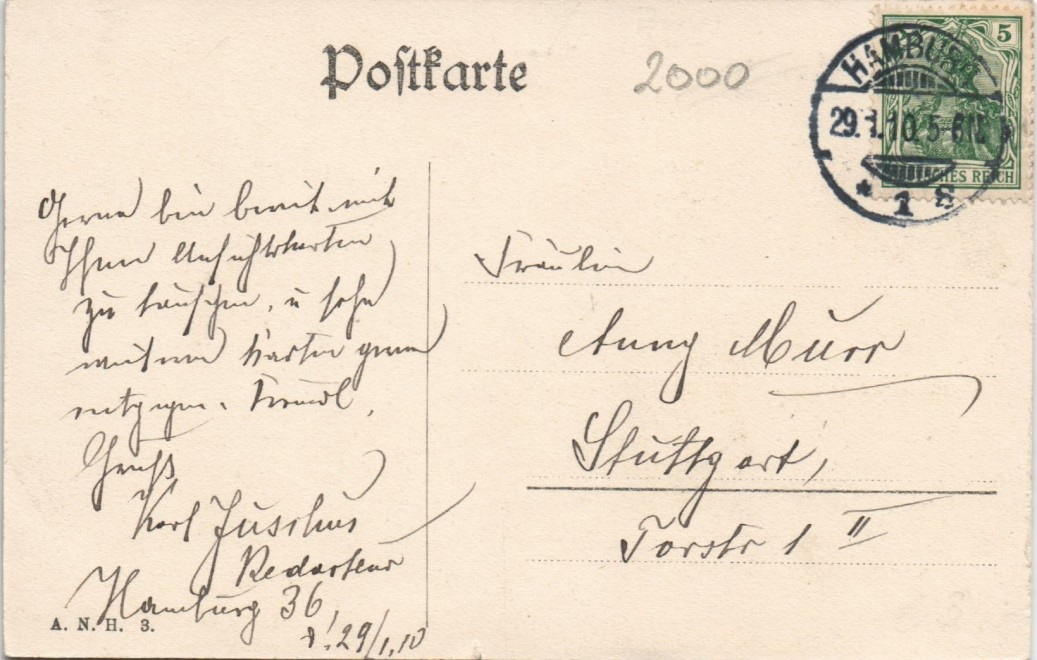 Postkarte
2000
5
HAMBURG
29.1.10. 5-6 N.
* 1
REICH
Gerne bin bereit mit
Ihnen Ansichtskarten
zu tauschen, u sehe
weiteren Karten gerne
entgegen. Freundl.
Gruß
Karl
Redacteur
Hamburg 36
29/1.10
A. N. H. 3.
Fräulein
Anny Murr
Stuttgart,
Torstr 1 II